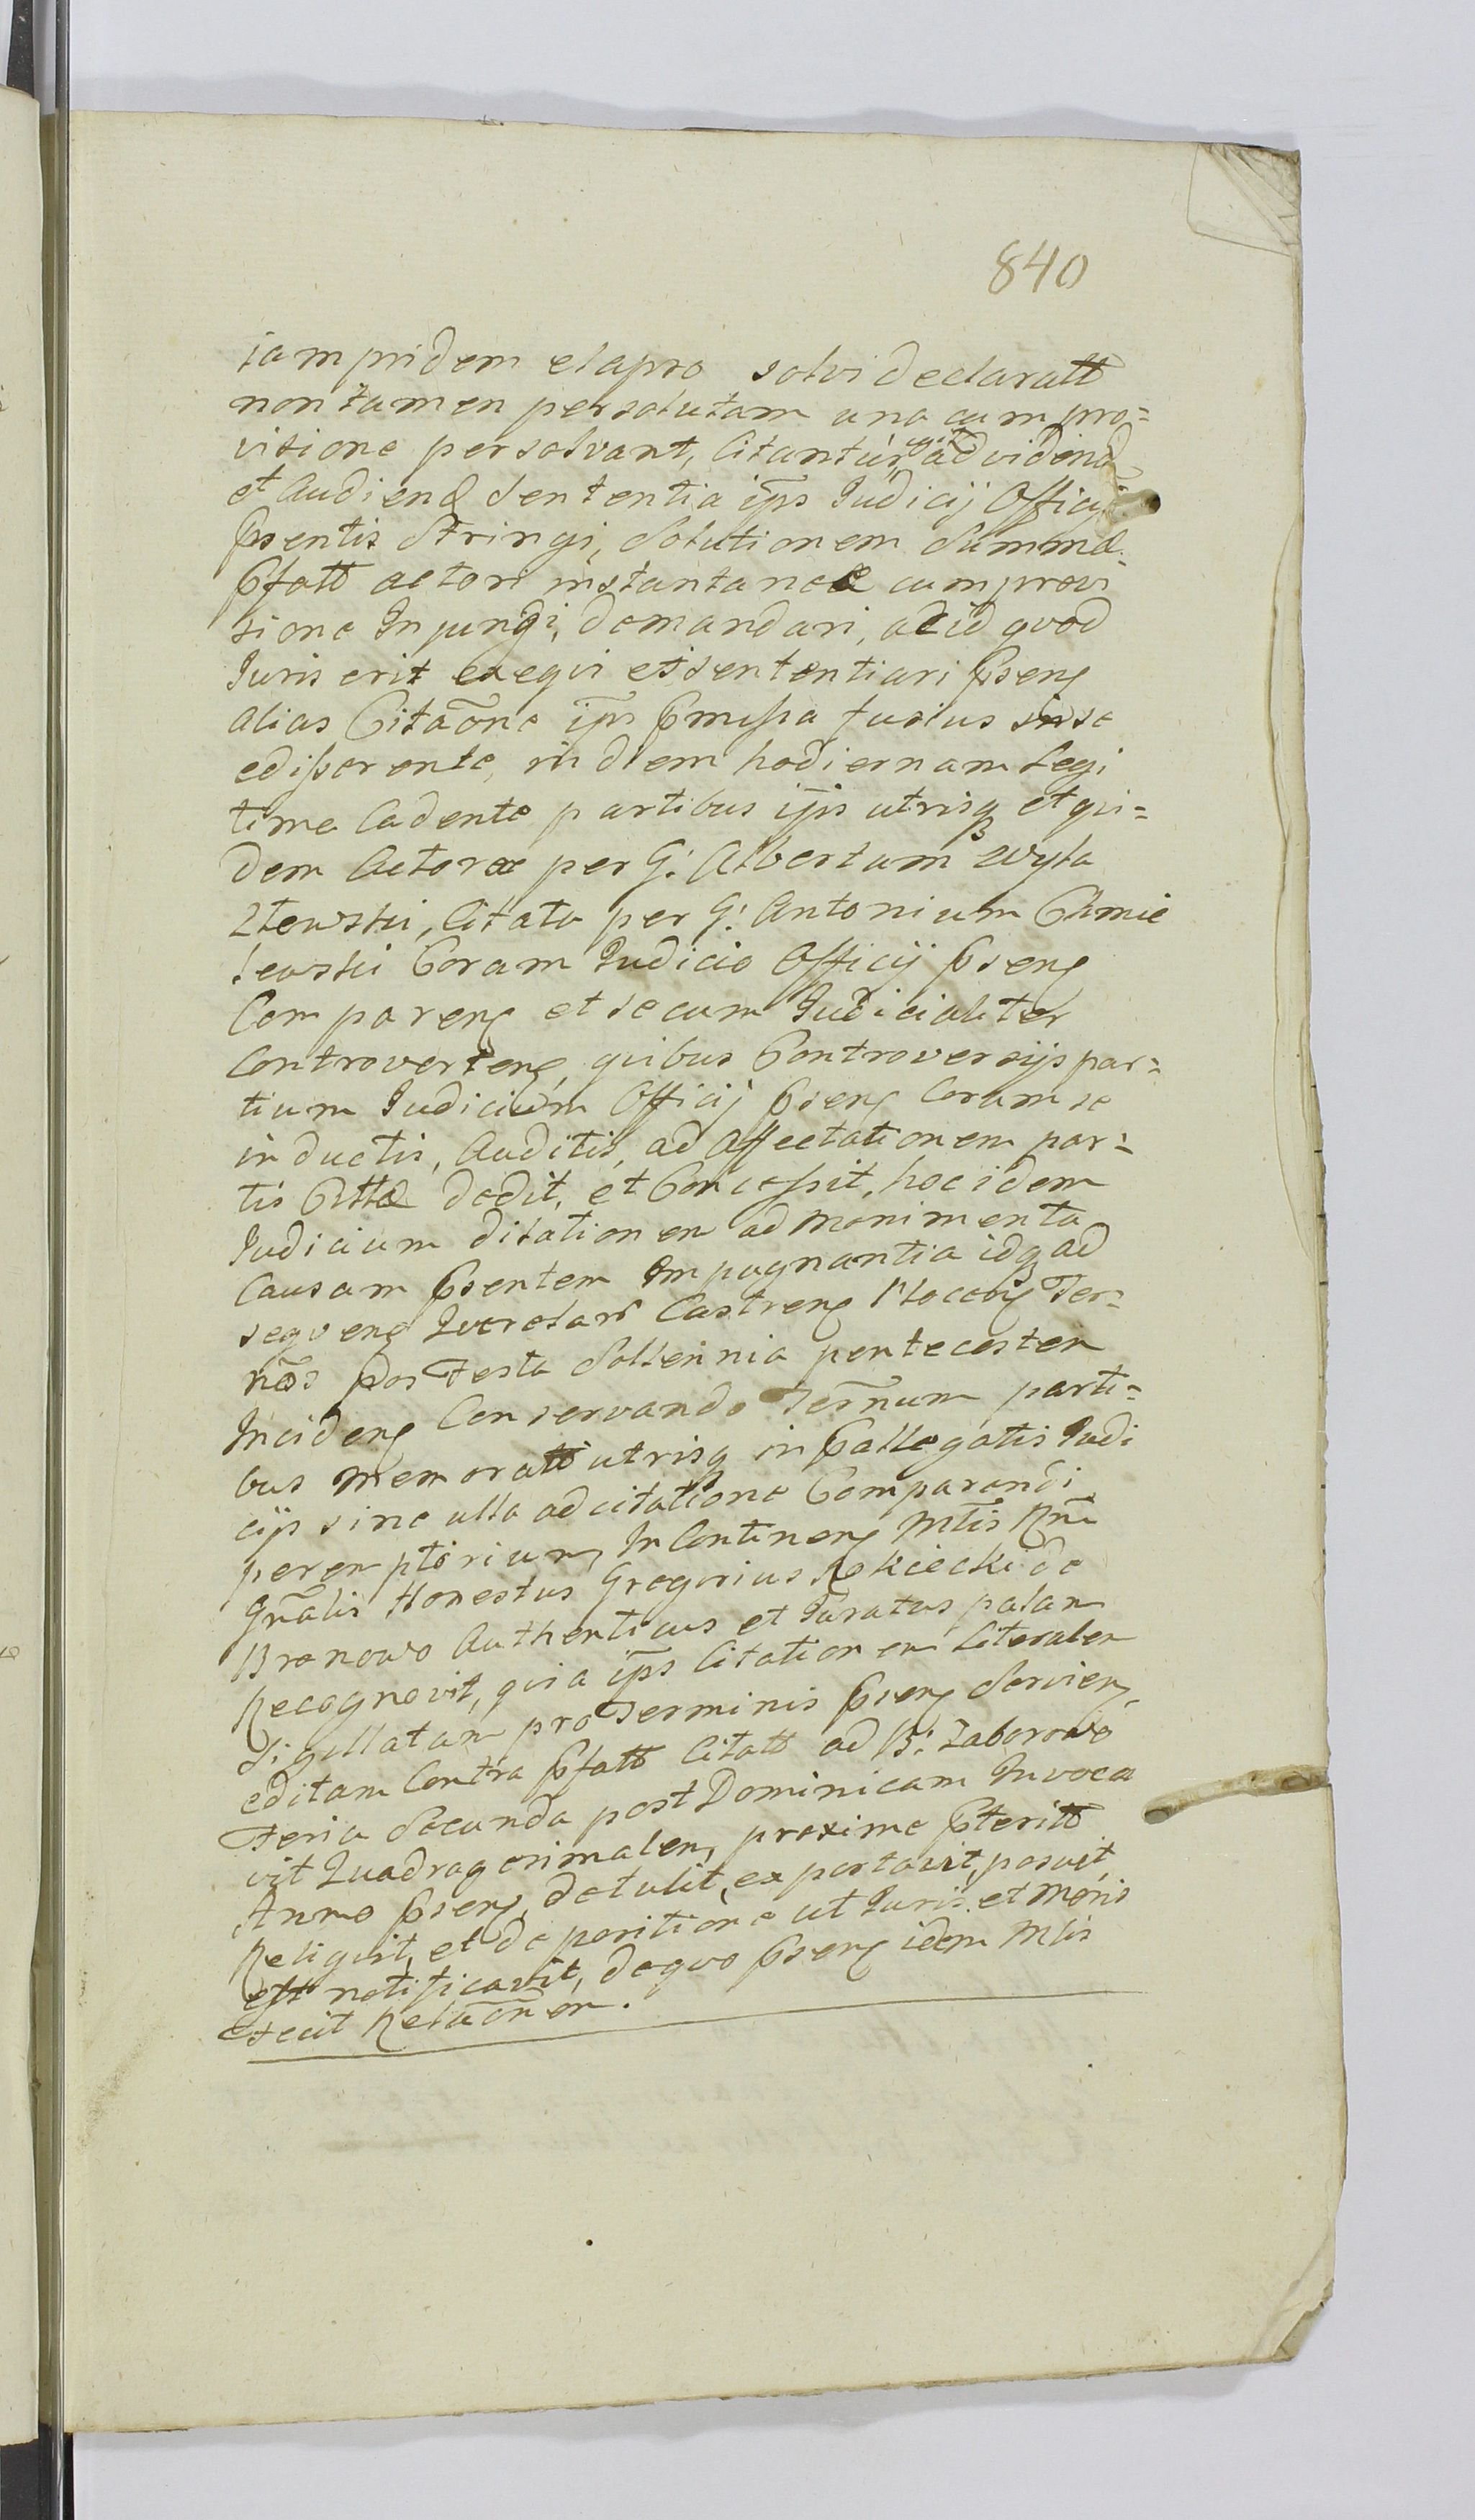 840
iam pridem elapso solvi declaratt
non tamen persolutam una cum pro=
visione persolvant, Citantur, ad vidend
et Audiend Sententia ips Judicij Officij
Psentis Stringi, Solutionem Summæ
Pfatt actori instantaneæ cum provi
sione Injungi, demandari, ac id quod
Juris erit exequi et sententiari Psens
alias Citaõne ips Pmissa fusius in se
edisserente, in diem hodiernam Legi
time Cadente partibus ijis utrisq et qui=
dem Actorea per G: Albertum Wyla
zlewski, Citata per G: Antonium Chmie
lewski Coram Judicio Officij Psens
Comparens et secum Judicialiter
Controvertens, quibus Controversijs par=
tium Judicium Officij Psens Coram se
inductis, Auditis, ad Affectationem par=
tis Cittæ dedit, et Concessit, hoc idem
Judicium dilationem ad Monimenta
Causam Psentem Impugnantia idq ad
sequens Querelar Castrens Plocens Ter=
nõs pos Festa Sollennia pentecosten
Incidens Conservando Ternum parti=
bus Memoratt utrisq in Pallegatis Judi
cijs sine ulla adcitatione Comparendi
peremptorium, In Continens Mtis Rni
Gnalis Honestus Gregorius Rokicki de
Bronowo Authenticus et Juratus palam
Recognovit, quia ips Citationem Literalem
Sigillatam pro Terminis Psens Servien,
editam Contra Pfatt Citatt ad B: Zaborowo
Feria Secunda post Dominicam Invoca
vit Quadragesimalem, proxime Pteritt
Anno Psens, detulit, exportavit, posuit,
Reliquit, et de positione ut Juris et Moris
est notificavit, de quo Psens idem Mtis
fecit Relaõnem.